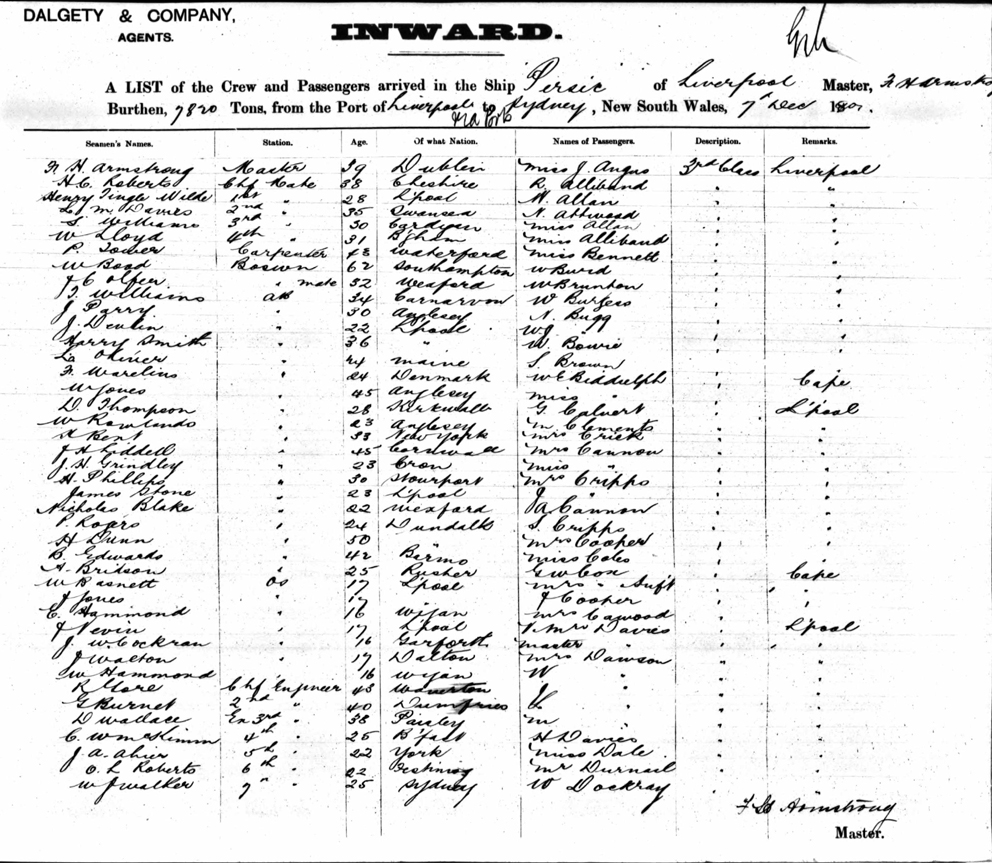 DALGETY & COMPANY,
AGENTS.
INWARD.
A LIST of the Crew and Passengers arrived in the Ship Persic of Liverpool Master, F H Armstrong
Burthen, 7820 Tons, from the Port of Liverpool to Sydney, New South Wales, 7th Dec
Seamen's Names. Station. Age. Of what Nation. Names of Passengers. Description. Remarks.
F. H. Armstrong Master 39 Dublin Miss J. Angus 3rd Class Liverpool
H. C. Roberts Chf Mate 38 Cheshire R. Alliband " "
Henry Tingle Wilde 1st " 28 L'pool W. Allan " "
L. M. Davies 2nd " 35 Swansea N. Attwood " "
S. Williams 3rd " 30 Cardigan Miss Allan " "
W Lloyd 4th " 31 B'ham Miss Alliband " "
P. Tower Carpenter 48 Waterford Miss Bennett " "
W Boad Boswn 62 Southampton W Burd " "
J C Olsen " mate 32 Wexford W Brunton " "
T. Williams AB 34 Carnarvon W Burgess " "
J Parry " 30 Anglesey N. Bugg " "
J. Devlin " 22 L'pool W J " " "
Harry Smith " 36 " W. Bowie " "
L. Oliver " 24 Maine S. Brown " "
F. Warelius " 24 Denmark W E Biddulph " Cape
W Jones " 45 Anglesey Miss " "
D. Thompson " 28 Kirkwall G. Calvert " L'pool
W Rowlands " 23 Anglesey M Clements " "
A Kent " 33 New York Mrs Crick " "
J H Loddell " 45 Mrs Cannon " "
J. H. Grindley " 23 Miss " " "
H. Phillips " 30 Stourport Mrs Cripps " "
James Stone " 23 L'pool
Nicholas Blake " 22 Wexford J A Cannon " "
P. Rogers " 24 Dundalk S. Cripps " "
H Dunn " 50 " Mrs Cooper " "
B. Edwards " 42 Miss Coles " "
A. Britson " 25 G W Cox " Cape
W Basnett OS 17 L'pool Mrs " "
J Jones " 17 " J Cooper " "
C. Hammond " 16 Wigan Mrs Cawood " "
J Nevin " 17 L'pool Mrs Davies " L'pool
J. W. Cockran " 16 Garforth Master " " "
J Walton " 17 Dalton Mrs Dawson " "
W Hammond " 16 Wigan W " " "
R Gore Chf Engineer 43 Waverton J " " "
G Burnet 2nd " 40 Dumfries
D Wallace En 3rd " 38 Paisley M " "
C. W McKimm 4th " 25 B'fast H Davies " "
J. A. Alier 5th " 22 York Miss Dale " "
O. L Roberts 6th " 22 Festiniog Mr Durnail " "
W J Walker 7 " 25 Sydney W Dockray " "
F H Armstrong
Master.